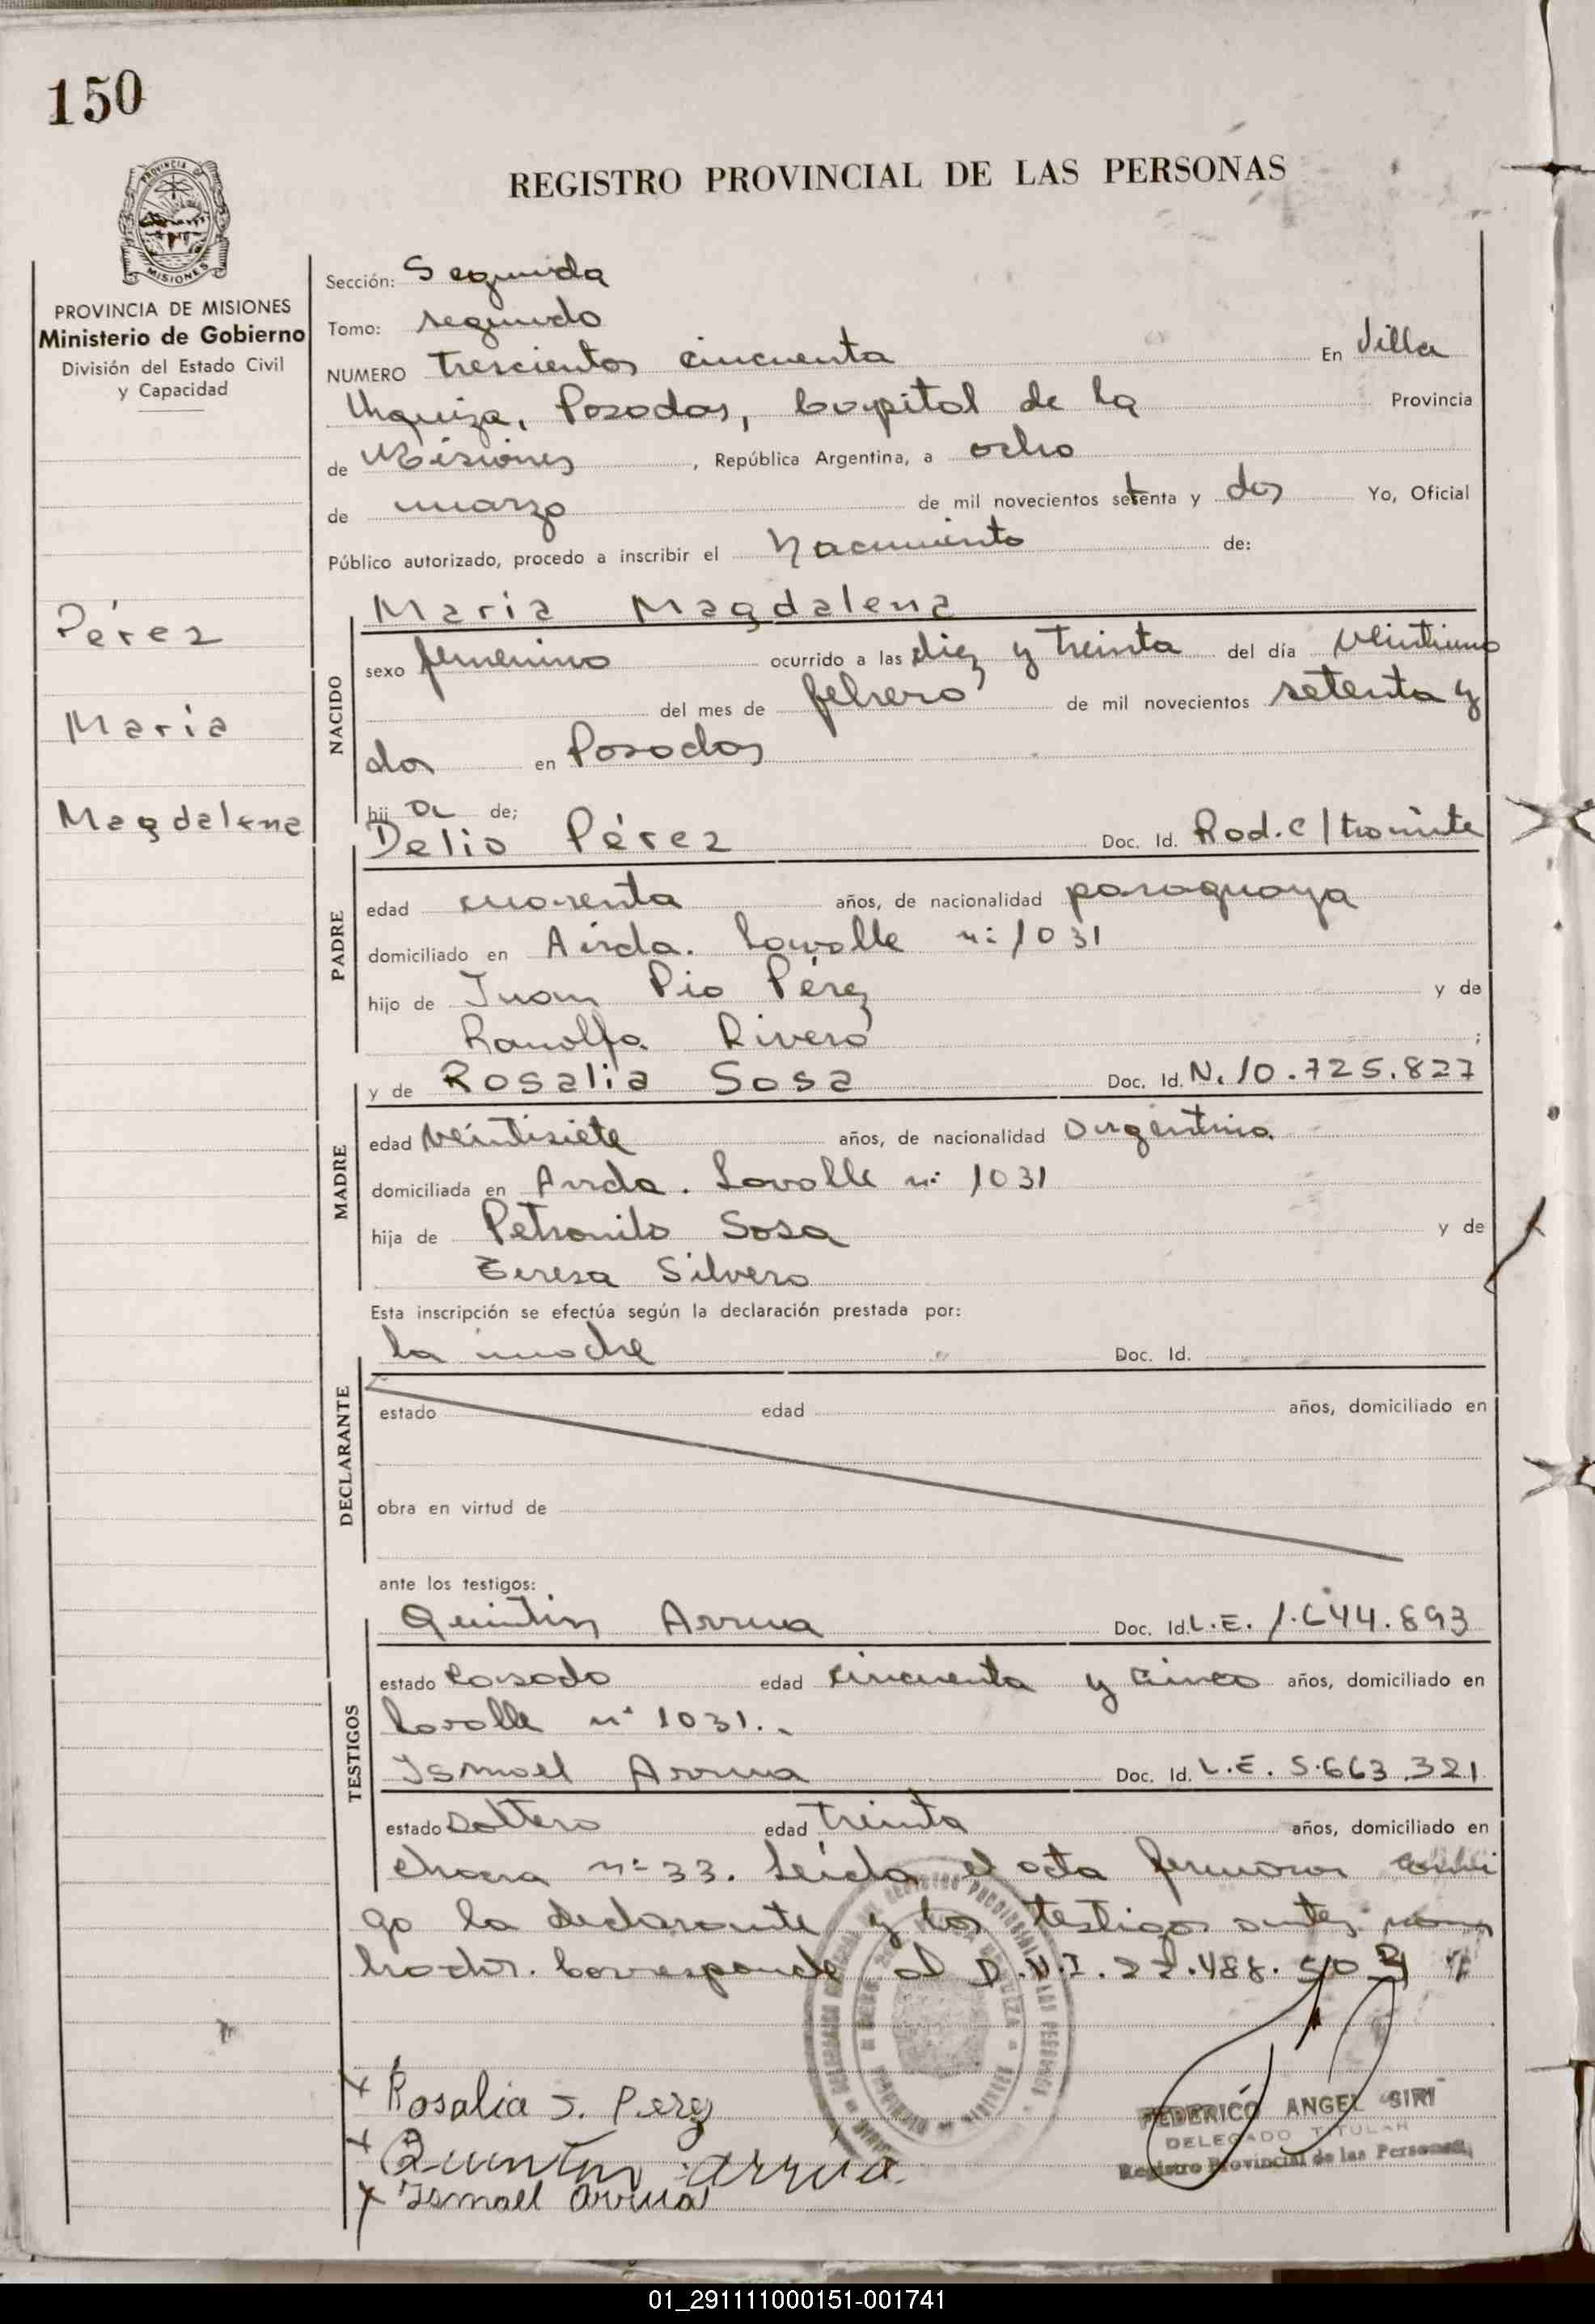 150
REGISTRO PROVINCIAL DE LAS PERSONAS
PROVINCIA DE MISIONES
PROVINCIA DE MISIONES
Ministerio de Gobierno
División del Estado Civil
y Capacidad
Pérez
Maria
Magdalena
Sección: Segunda
Tomo: segundo
NUMERO Trescientos cincuenta En Villa
Urquiza, Posadas, Capital de la Provincia
de Misiones, República Argentina, a ocho
de marzo de mil novecientos setenta y dos Yo, Oficial
Público autorizado, procedo a inscribir el Nacimiento de:
NACIDO
Maria Magdalena
sexo femenino ocurrido a las diez y treinta del día veintiuno
del mes de febrero de mil novecientos setenta y
dos en Posadas
hij a de;
PADRE
Delio Pérez Doc. Id. Rad. c/tramite
edad cuarenta años, de nacionalidad paraguaya
domiciliado en Avda. Lavalle n: 1031
hijo de Juan Pio Pérez y de
Ranolfa Rivero ;
MADRE
y de Rosalia Sosa Doc. Id. N. 10.725.827
edad veintisiete años, de nacionalidad argentina
domiciliada en Avda. Lavalle n: 1031
hija de Petronilo Sosa y de
Teresa Silvero
Esta inscripción se efectúa según la declaración prestada por:
DECLARANTE
la madre Doc. Id.
estado edad años, domiciliado en
obra en virtud de
ante los testigos:
TESTIGOS
Quintin Arrua Doc. Id. L.E. 1.644.893
estado casado edad cincuenta y cinco años, domiciliado en
Lavalle n° 1031.
Ismael Arrua Doc. Id. L.E. 5.663.321
estado soltero edad treinta años, domiciliado en
chacra n: 33. Leida el acta firmaron conmi
go la declarante y los testigos antes nom
brados. Corresponde al D.N.I. 22.488.
Rosalia S. Perez
Quintin Arrua
Ismael Arrua
FEDERICO ANGEL SIRI
DELEGADO TITULAR
Registro Provincial de las Personas
01_291111000151-001741